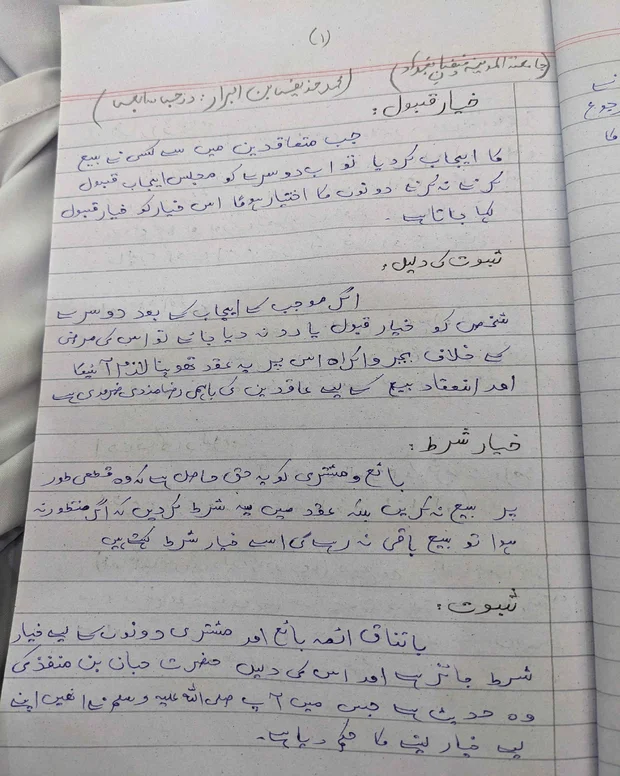 (۱)
(جامعۃ المدینہ فیضان بغداد)
(محمد حذیفہ بن ابرار : درجہ سابعہ)
خیار قبول :
جب متعاقدین میں سے کسی نے بیع
کا ایجاب کر دیا تو اب دوسرے کو مجلس ایجاب قبول
کرنے نہ کرنے دونوں کا اختیار ہوگا اس خیار کو خیار قبول
کہا جاتا ہے ۔
ثبوت کی دلیل :
اگر موجب کے ایجاب کے بعد دوسرے
شخص کو خیار قبول یا رد نہ دیا جائے تو اس کی مرضی
کے خلاف بجبر و اکراہ اس پر یہ عقد تھوپنا لازم آئیگا
اور انعقاد بیع کے لیے عاقدین کی باہمی رضامندی ضروری ہے
خیار شرط :
بائع و مشتری کو یہ حق حاصل ہے کہ وہ قطعی طور
پر بیع نہ کریں بلکہ عقد میں یہ شرط کر دیں کہ اگر منظور نہ
ہوا تو بیع باقی نہ رہے گی اسے خیار شرط کہتے ہیں
ثبوت :
باتفاق ائمہ بائع اور مشتری دونوں کے لیے خیار
شرط جائز ہے اور اس کی دلیل حضرت حبان بن منقذ کی
وہ حدیث ہے جس میں آپ صلی اللہ علیہ وسلم نے انھیں اپنے
لیے خیار لینے کا حکم دیا ہے ۔
رجوع
کا